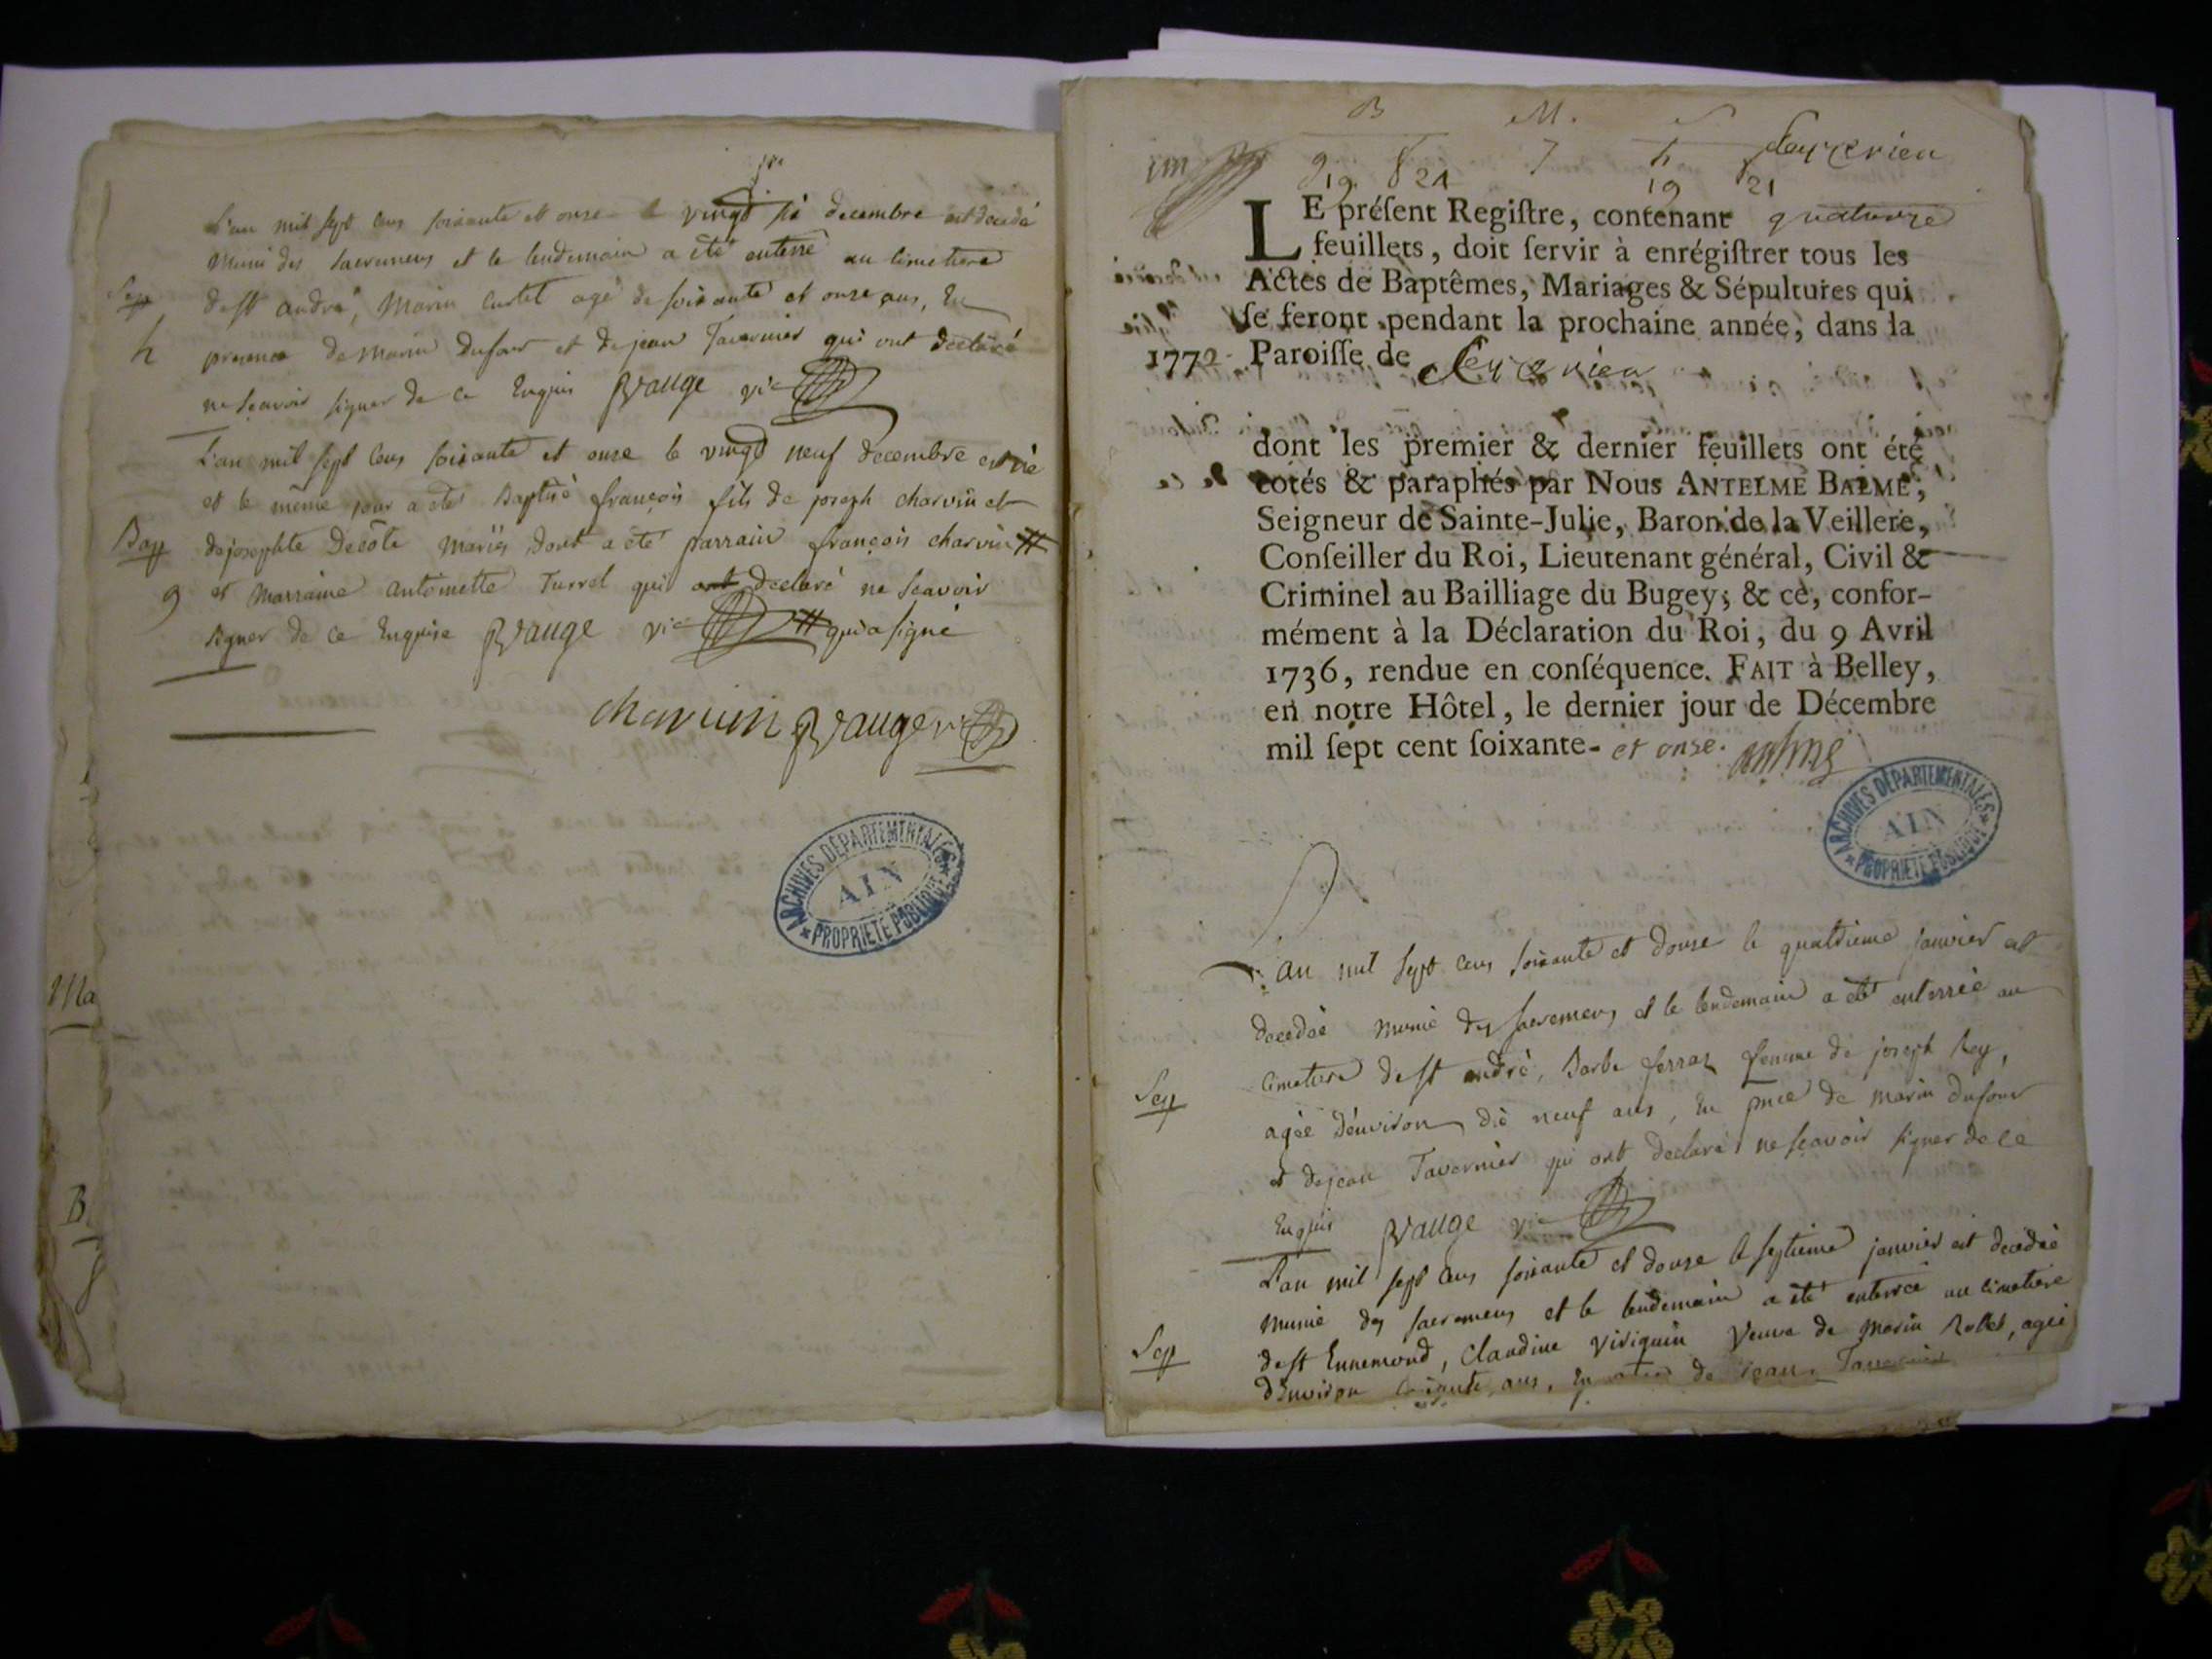 L'an mil sept cens soixante et onze le vingt si decembre est decedé
muni des sacremens et le lendemain a été enterré au cimetiere
Sep
de st andré, Marin Curtet agé de soixante et onze ans, En
h
presence de marin Dufour et de jean Tavernier qui ont declaré
ne sçavoir signer de ce Enquis Rvauge vic
L'an mil sept cens soixante et onze le vingt neuf decembre est né
et le même jour a été Baptisé françois fils de joseph charvin et
Bap
de josephte Decôte mariés, dont a été parrain françois charvin #
9
et marraine antoinette Turrel qui ont declaré ne scavoir
signer de ce Enquise Rvauge vic # qui a signé
charvin Rvauge vic
ARCHIVES DEPARTEMENTALES
AIN
PROPRIETE PUBLIQUE
Ma
B
B M. S
9 8 7 h Ceyzerieu
19 21 19 21
LE préſent Regiſtre, contenant quatorze
feuillets, doit ſervir à enrégiſtrer tous les
Actes de Baptêmes, Mariages & Sépultures qui
ſe feront pendant la prochaine année, dans la
1772 Paroiſſe de Ceyzerieu
dont les premier & dernier feuillets ont été
cotés & paraphés par Nous ANTELME BALME,
Seigneur de Sainte-Julie, Baron de la Veillere,
Conſeiller du Roi, Lieutenant général, Civil &
Criminel au Bailliage du Bugey; & ce, confor-
mément à la Déclaration du Roi, du 9 Avril
1736, rendue en conſéquence. FAIT à Belley,
en notre Hôtel, le dernier jour de Décembre
mil ſept cent ſoixante- et onze.
ARCHIVES DEPARTEMENTALES
AIN
PROPRIETE PUBLIQUE
L'an mil sept cens soixante et douze le quatrieme janvier est
decedée munie des sacremens et le lendemain a été enterrée au
Sep
cimetiere de st andré, Barbe ferraz femme de joseph Rey,
agée d'environ dix neuf ans, En pnce de marin dufour
et de jean Tavernier qui ont declaré ne sçavoir signer de ce
Enquis Rvauge vic
L'an mil sept cens soixante et douze le septieme janvier est decedée
munie des sacremens et le lendemain a été enterrée au cimetiere
Sep
de st Ennemond, Claudine Viviquin Veuve de marin Rollet, agée
d'Environ ans, En de jean Tavernier